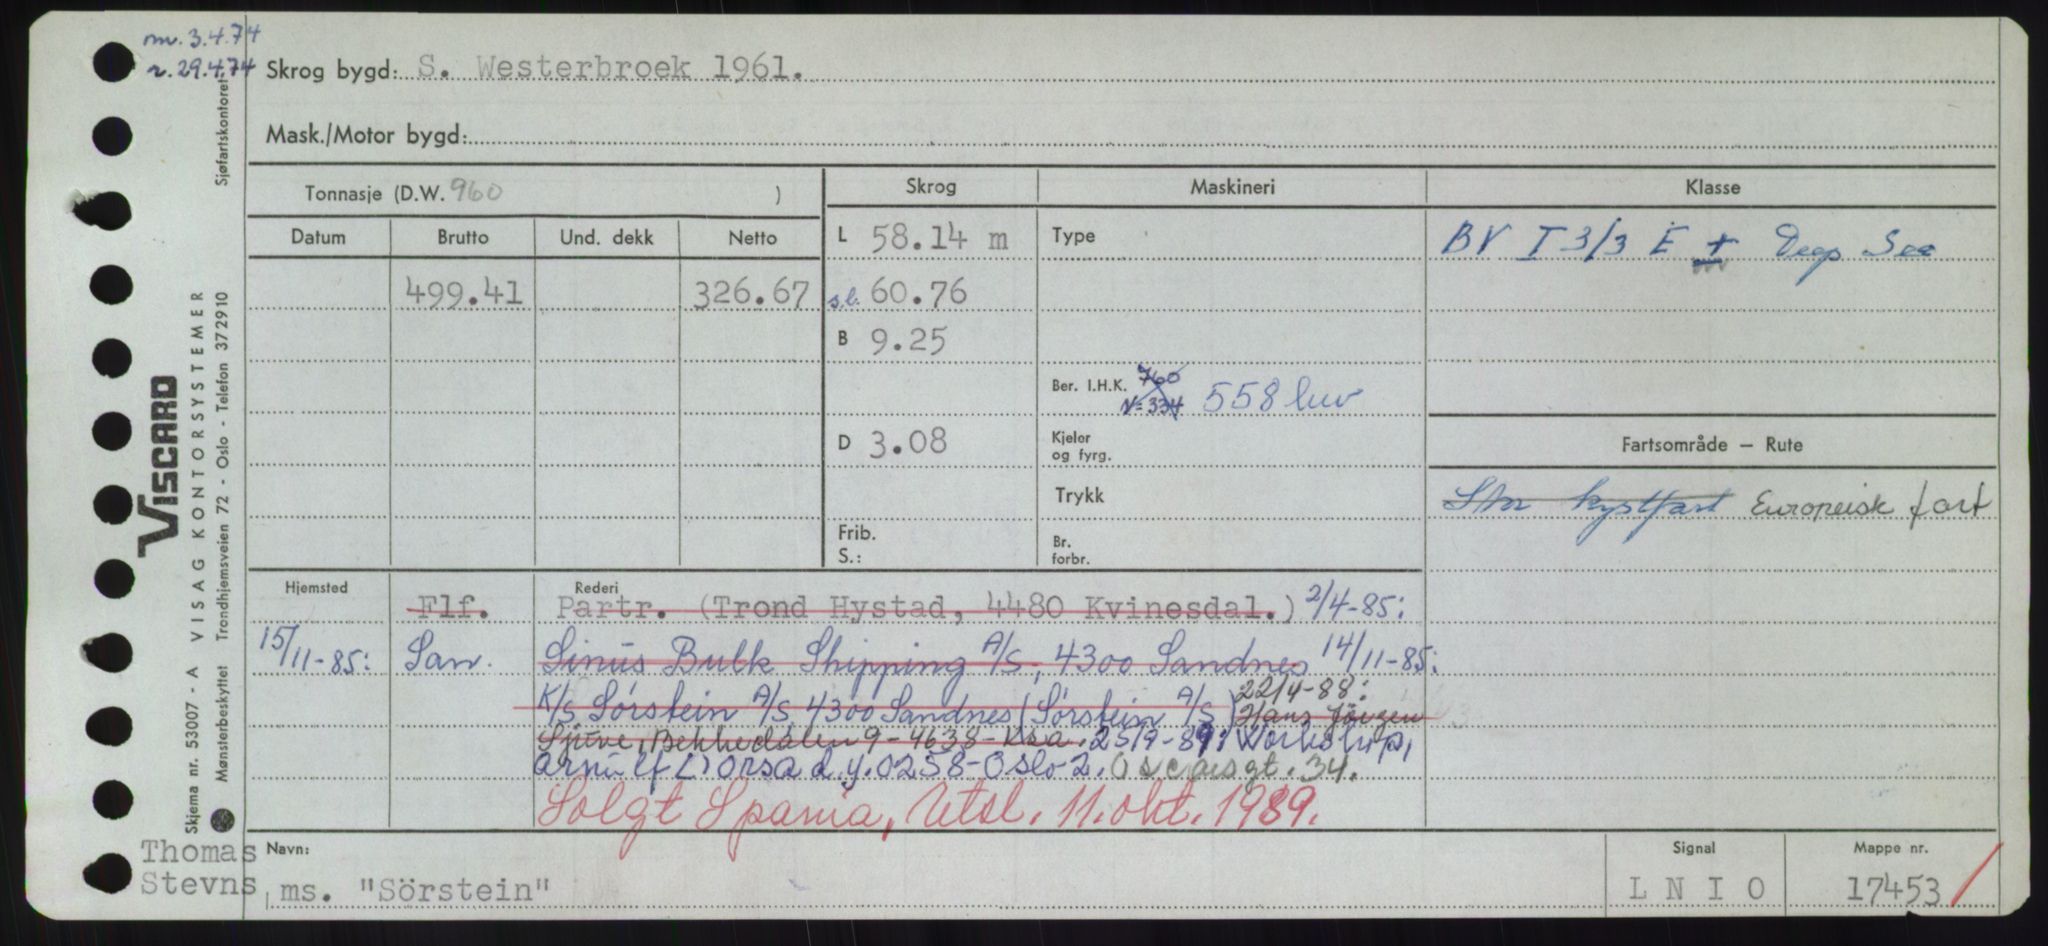 nv. 3.4.74
r. 29.4.74
Skrog bygd: S. Westerbroek 1961.
Mask./Motor bygd:
Tonnasje (D.W. 960 )
Skrog
Maskineri
Klasse
Datum Brutto Und. dekk Netto
L 58.14 m
Type
BV I 3/3 E + Deep Sea
499.41 326.67
s.l. 60.76
B 9.25
Ber. I.H.K. 760
N=334 558 kw
D 3.08
Kjeler
og fyrg.
Fartsområde — Rute
Trykk
Stor kystfart Europeisk fart
Frib.
S.:
Br.
forbr.
Hjemsted
Rederi
Flf. Partr. (Trond Hystad, 4480 Kvinesdal.) 2/4-85:
15/11-85: San. Sinus Bulk Shipping A/S, 4300 Sandnes 14/11-85:
K/S Sørstein A/S, 4300 Sandnes (Sørstein A/S) 22/4-88: Hans Jörgen
Sjuve, Bekkedalen 9-4638-Ksa. 25/9-89: Workship,
Arnulf L) Orsa d.y. 0258-Oslo 2. Oscarsgt. 34.
Solgt Spania, Utsl. 11. okt. 1989.
Thomas
Stevns
Navn:
ms. "Sörstein"
Signal
L N I O
Mappe nr.
17453
Sjøfartskontoret
VISCARD
VISAG KONTORSYSTEMER
Trondhjemsveien 72 - Oslo - Telefon 372910
Skjema nr. 53007 - A
Mønsterbeskyttet